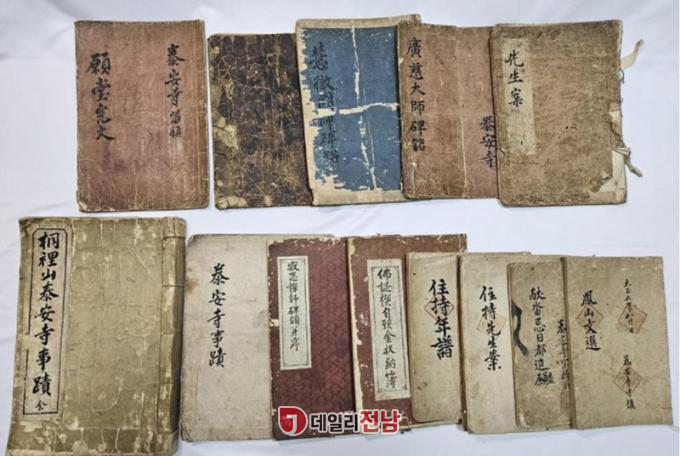 泰安寺留鎮
願堂完文
慈徹國師碑銘
廣慈大師碑銘
泰安寺
先生案
桐裡山泰安寺事蹟 全
泰安寺事蹟
寂忍禪師碑頌并序
佛誕禊自強金收納簿
住持年譜
住持先生案
泰安寺
鳳山文選
데일리전남